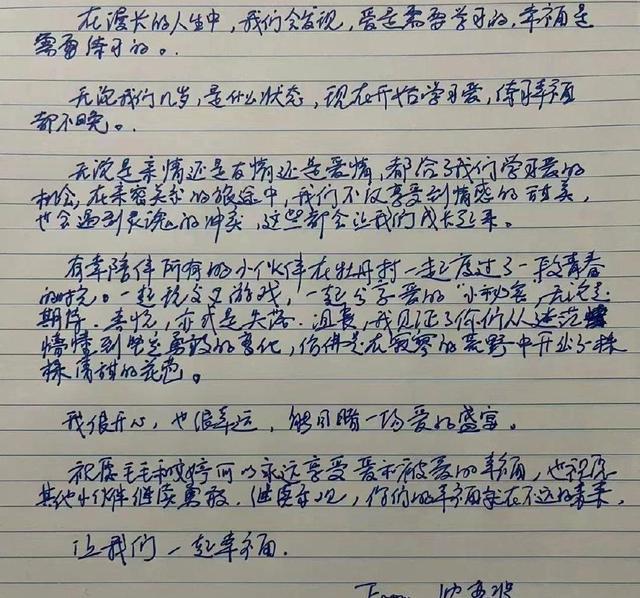 在漫长的人生中，我们会发现，爱是需要学习的，幸福是
需要练习的。
无论我们几岁，是什么状态，现在开始学习爱，练习幸福
都不晚。
无论是亲情还是友情还是爱情，都给了我们学习爱的
机会，在亲密关系的旅途中，我们不仅享受到情感的甜美，
也会遇到灵魂的冲突，这些都会让我们成长起来。
有幸陪伴所有的小伙伴在牡丹村一起度过了一段青春
的时光。一起玩交叉游戏，一起分享爱的“小秘密，无论是
期待、喜悦，亦或是失落、沮丧，我见证了你们从迷茫
懵懂到坚定勇敢的变化，仿佛是在寂寥的荒野中开出了一株
株清甜的花苞。
我很开心，也很幸运，能目睹一场爱的盛宴。
祝愿毛毛和婷婷可以永远享受爱和被爱的幸福，也祝愿
其他小伙伴继续勇敢，继续乐观，你们的幸福就在不远的未来。
让我们一起幸福。
From